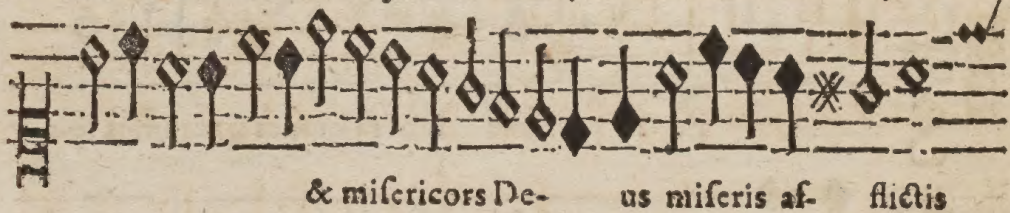 & miſericors De- us miſeris af- flictis